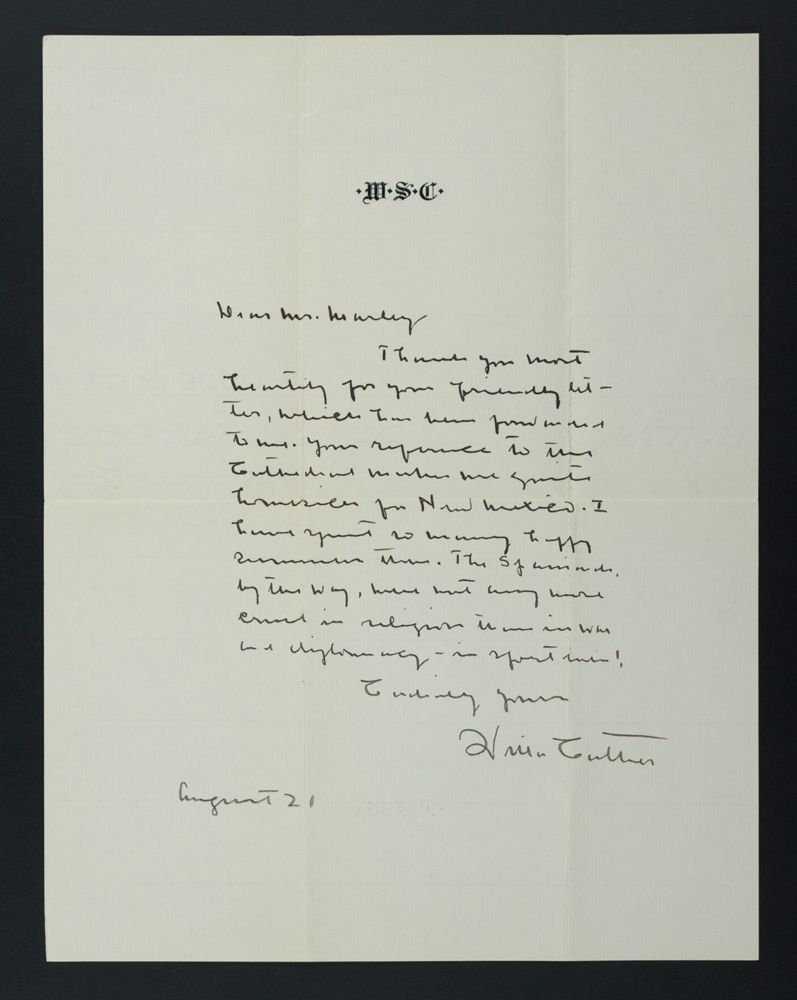 ·W·S·C·
Dear Mr. Marley
Thank you most
heartily for your friendly let-
ter, which has been forwarded
to me. Your reference to the
Cathedral makes me quite
homesick for New Mexico. I
have spent so many happy
summers there. The Spaniards,
by the way, were not any more
cruel in religion than in war
and diplomacy - in sport even!
Cordially yours
Willa Cather
August 21